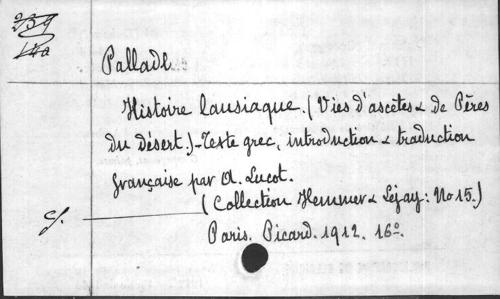 239
14a
Pallade
Histoire lausiaque. (Vies d'ascètes & de Pères
du désert.) - Texte grec, introduction & traduction
française par A. Lucot.
(Collection Hemmer & Lejay: No 15.)
Paris. Picard. 1912. 16º.